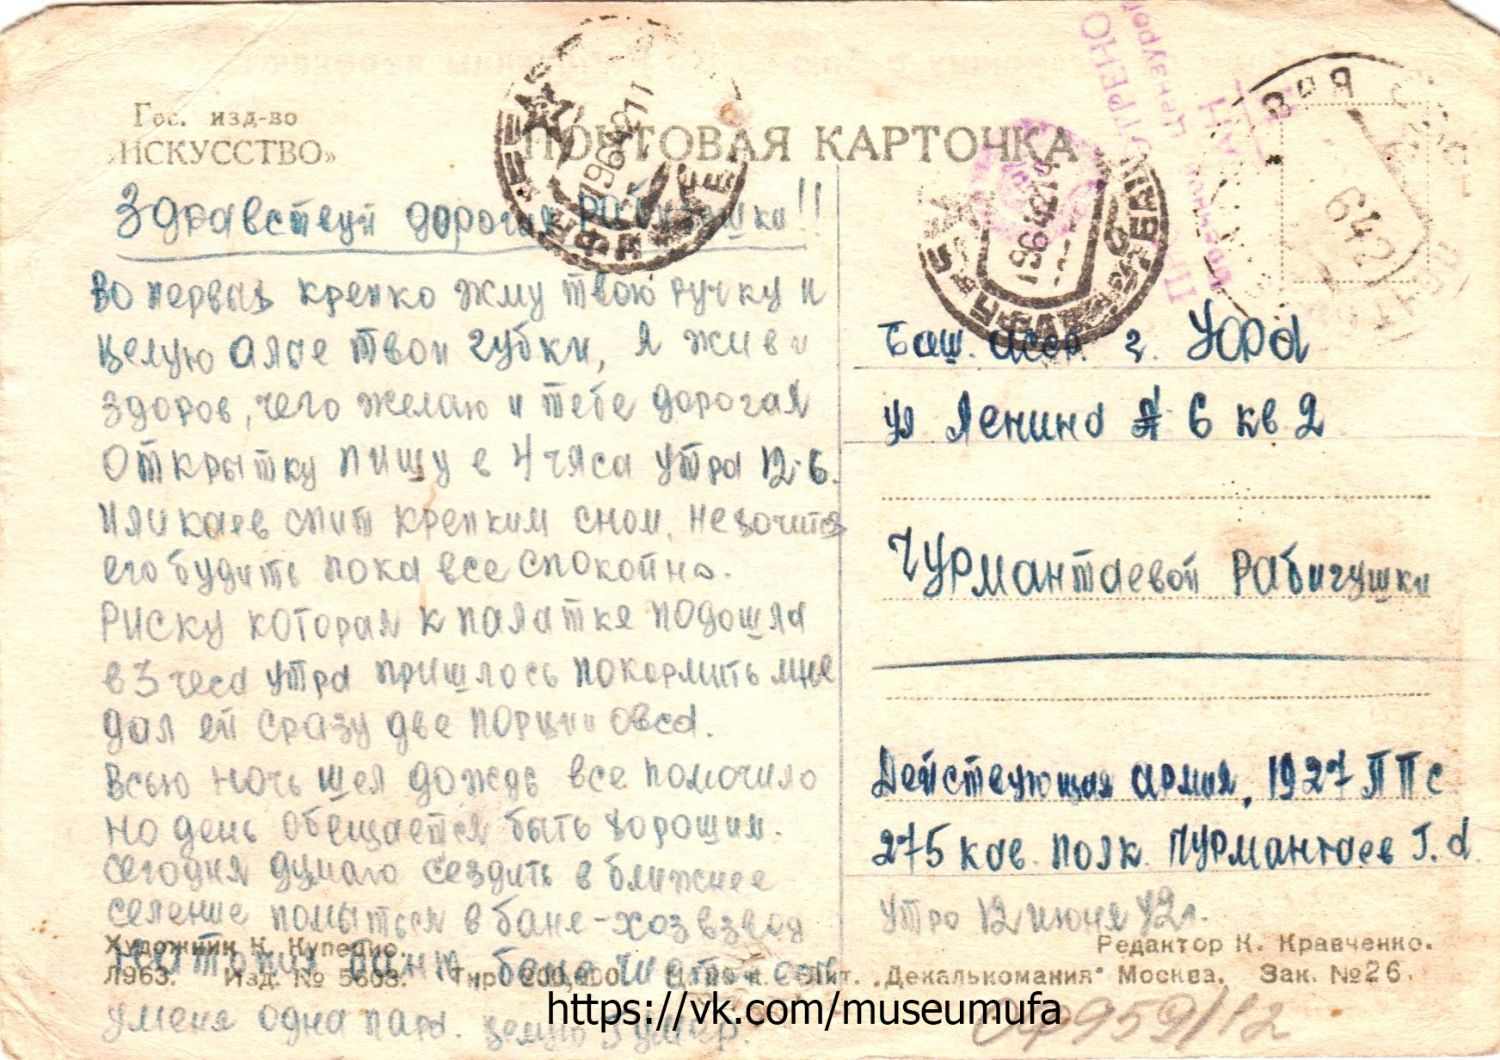 Гос. изд-во
„ИСКУССТВО»
ПОЧТОВАЯ КАРТОЧКА
Здравствуй дорогая Рабигушка!!
Во первых крепко жму твою ручку и
целую алые твои губки, я жив и
здоров, чего желаю и тебе дорогая
Открытку пишу в 4 часа утра 12-6.
спит крепким сном, не хочится
его будить пока все спокойно.
Риску которая к палатке подошла
в 3 часа утра пришлось покормить мне
дал ей сразу две порции овса.
Всю ночь шел дождь все помочило
но день обещается быть хорошим.
сегодня думаю сездить в ближнее
селение помыться в бане-хозвзвод
натопил баню белье чистое есть
у меня одна пара. целую Гумер.
Баш. АССР г. Уфа
ул Ленина № 6 кв 2
Чурмантаевой Рабигушки
Действующая армия, 1927 ППС
275 кав. полк. Чурмантаев Г.А.
Утро 12 июня 42г.
Художник К. Купецио.
Редактор К. Кравченко.
Л963. Изд. № 5603. Тир. 200,000. Лит. „Декалькомания" Москва. Зак. №26.
https://vk.com/museumufa
959/12
УФА
УФА